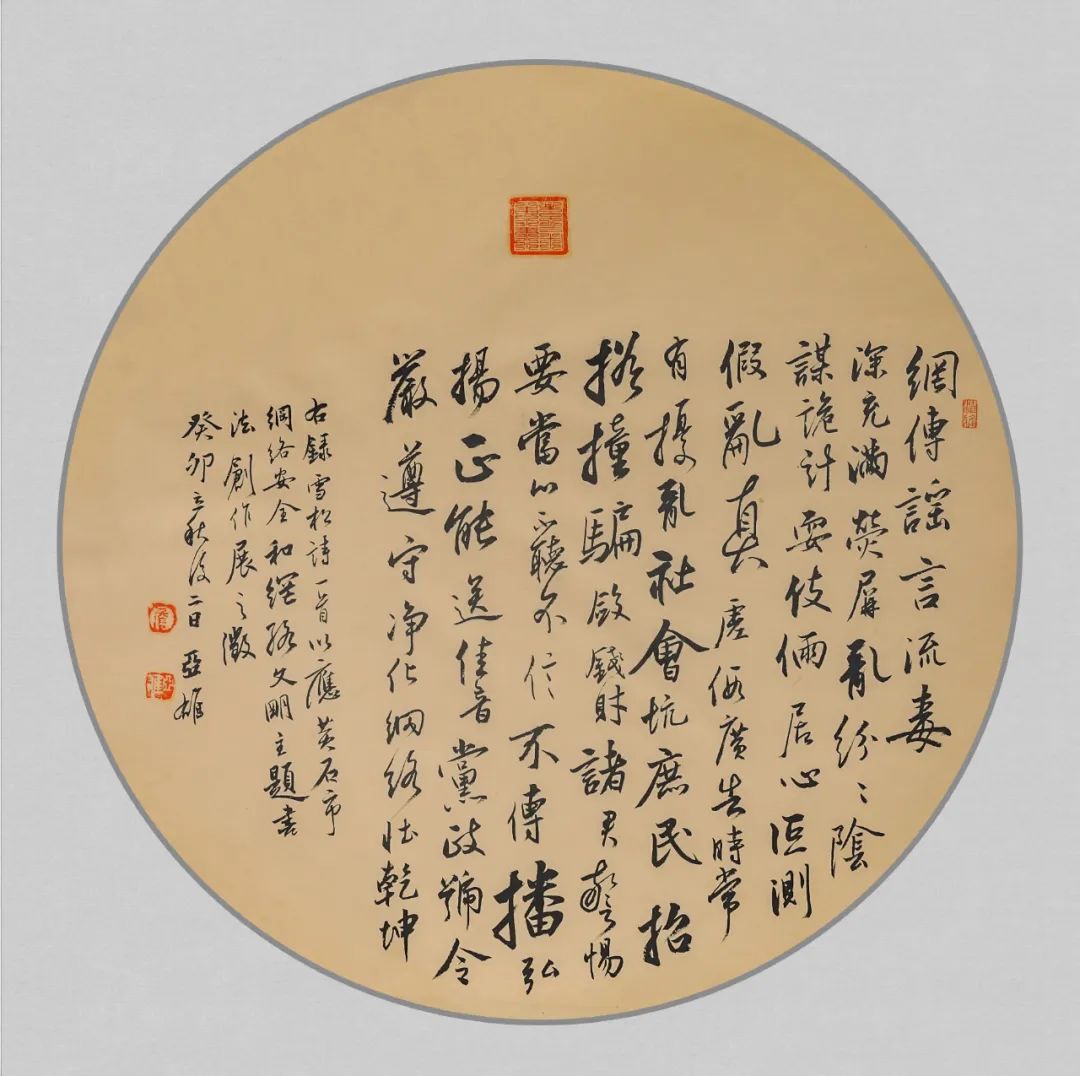 網傳謠言流毒
深充滿熒屏亂紛〻陰
謀詭計耍伎倆居心叵測
假亂真虛假廣告時常
有擾亂社會坑庶民招
搖撞騙斂錢財諸君警惕
要當心不聽不信不傳播弘
揚正能送佳音黨政號令
嚴遵守净化網絡壯乾坤
右錄雪松詩一首以應黃石市
網絡安全和網絡文明主題書
法創作展之徵
癸卯立秋後二日亞雄